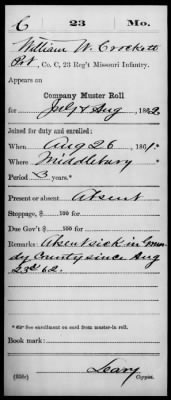 C 23 Mo.
William W. Crockett
Pvt, Co. C, 23 Reg't Missouri Infantry.
Appears on
Company Muster Roll
for July & Aug, 1862.
Joined for duty and enrolled:
When Aug 26, 1861.
Where Middlebury
Period 3 years.*
Present or absent Absent
Stoppage, $ 100 for
Due Gov't $ 100 for
Remarks: Absent sick in Grun
dy County since Aug
23d 62.
* See enrollment on card from muster-in roll.
Book mark:
Leary
(858c) Copyist.